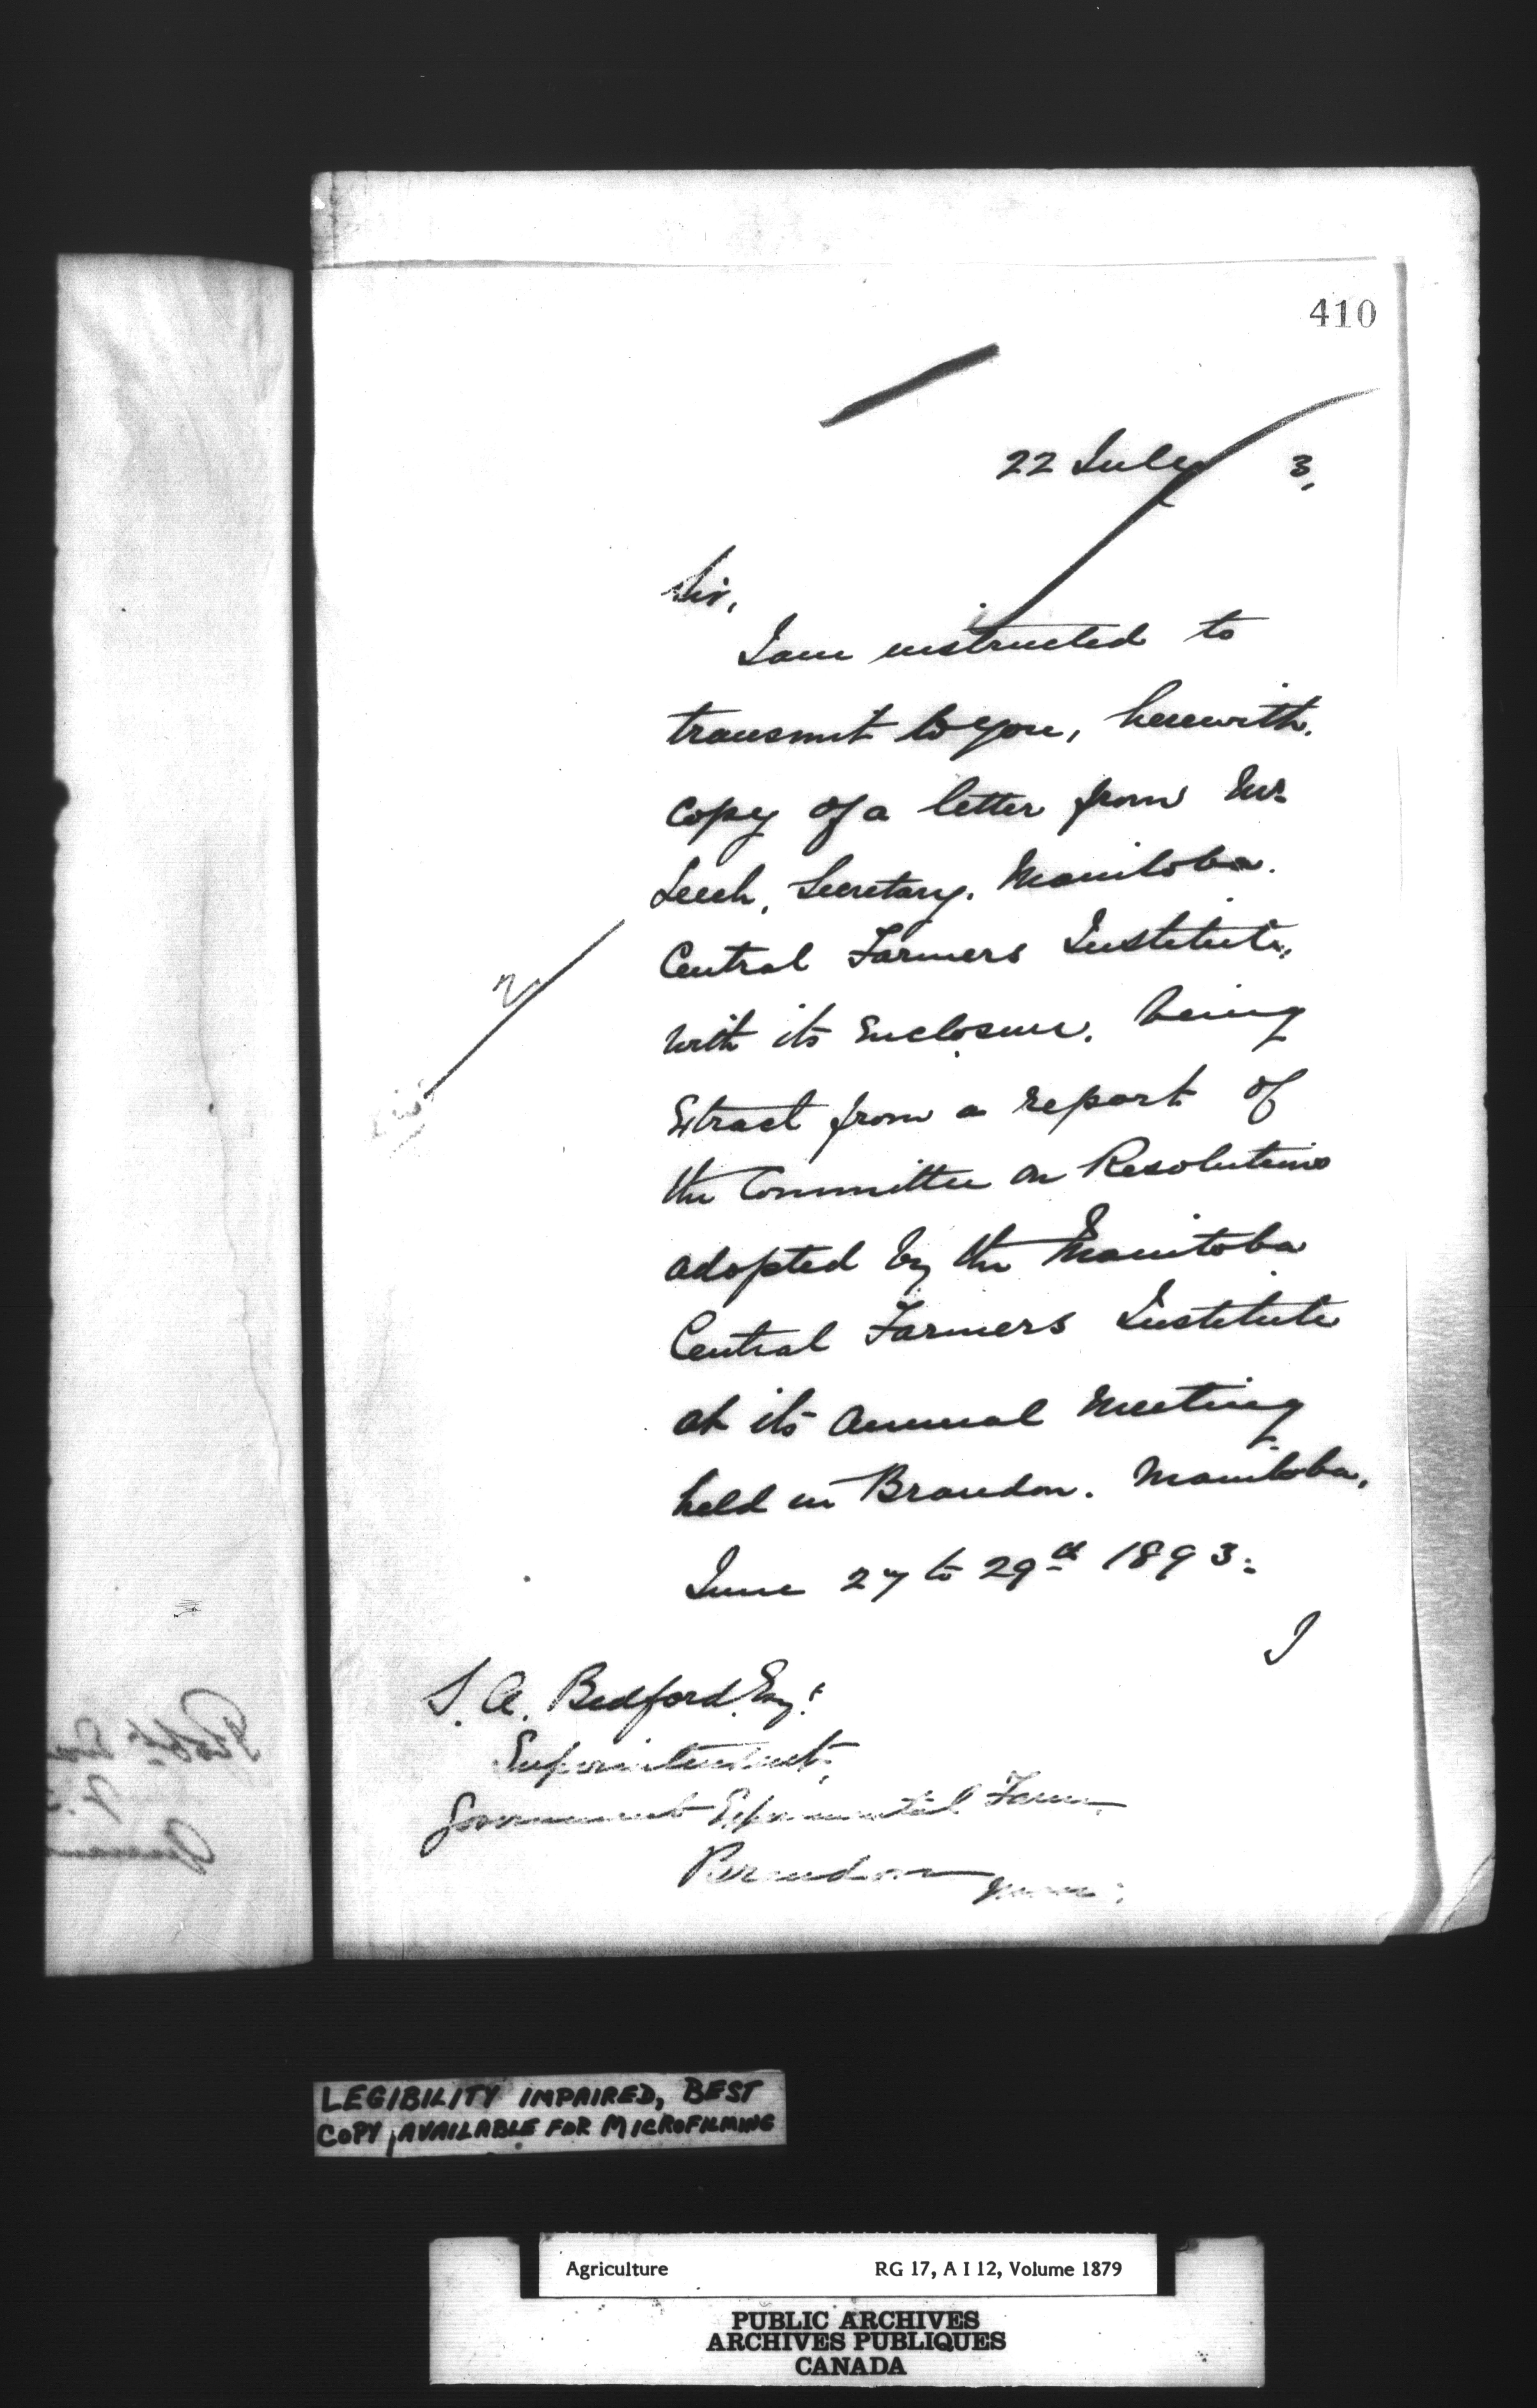 410
22 July 3,
Sir,
I am instructed to
transmit to you, herewith,
copy of a letter from Mr.
Leech, Secretary, Manitoba
Central Farmers Institute,
with its Enclosure, being
Extract from a report of
the Committee on Resolutions
adopted by the Manitoba
Central Farmers Institute
at its Annual Meeting
held in Brandon. Manitoba,
June 27 to 29th 1893:
I
S. A. Bedford Esqr.
Superintendent,
Government Experimental Farm,
Brandon
LEGIBILITY IMPAIRED, BEST
COPY AVAILABLE FOR MICROFILMING
Agriculture RG 17, A I 12, Volume 1879
PUBLIC ARCHIVES
ARCHIVES PUBLIQUES
CANADA